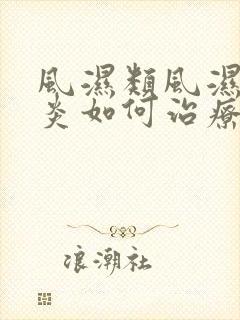 風濕類風濕
炎如何治療
浪潮社